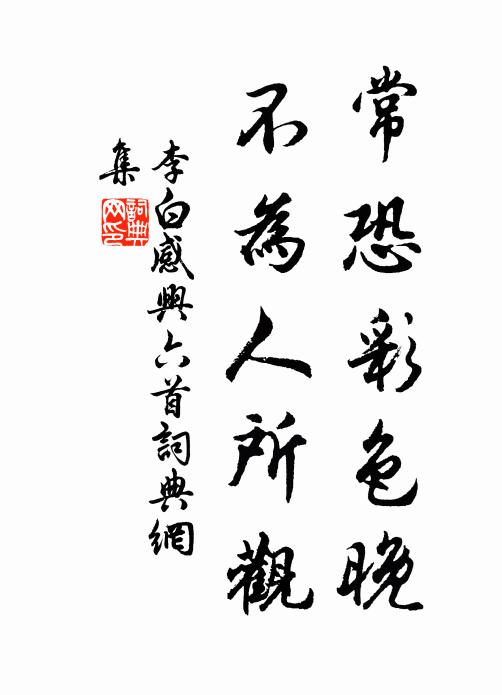 常恐彩色晚
不為人所觀
李白感興六首詞典網
集
詞典
网印